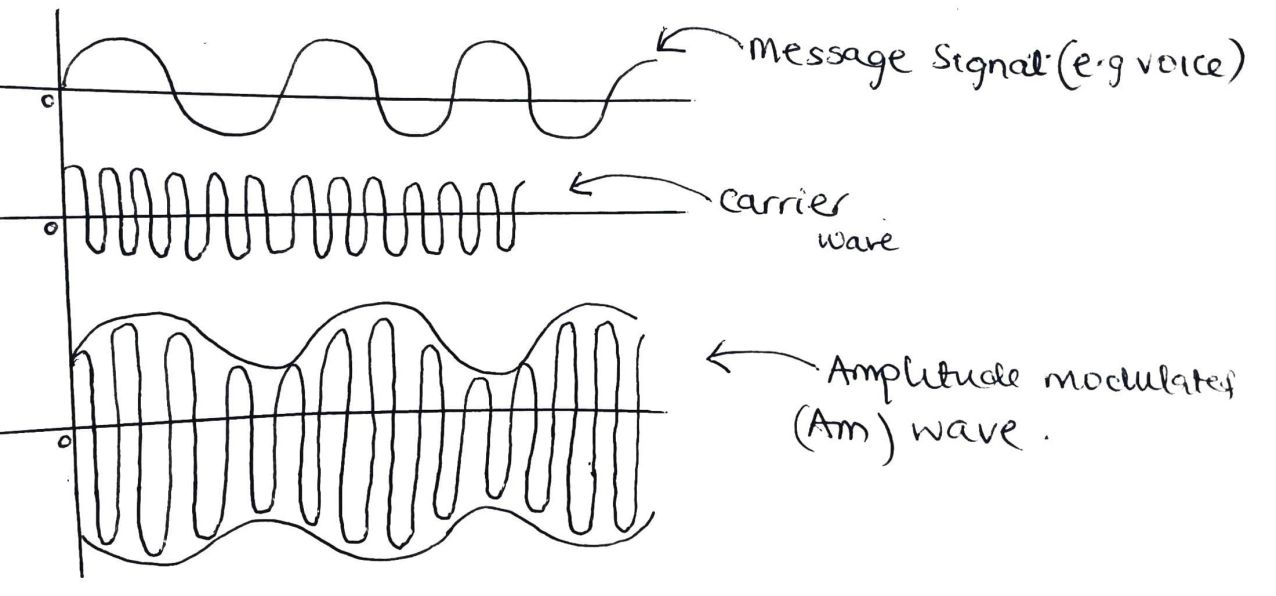 Message Signal (e.g voice)
0
carrier
wave
0
Amplitude modulated
(Am) wave.
0